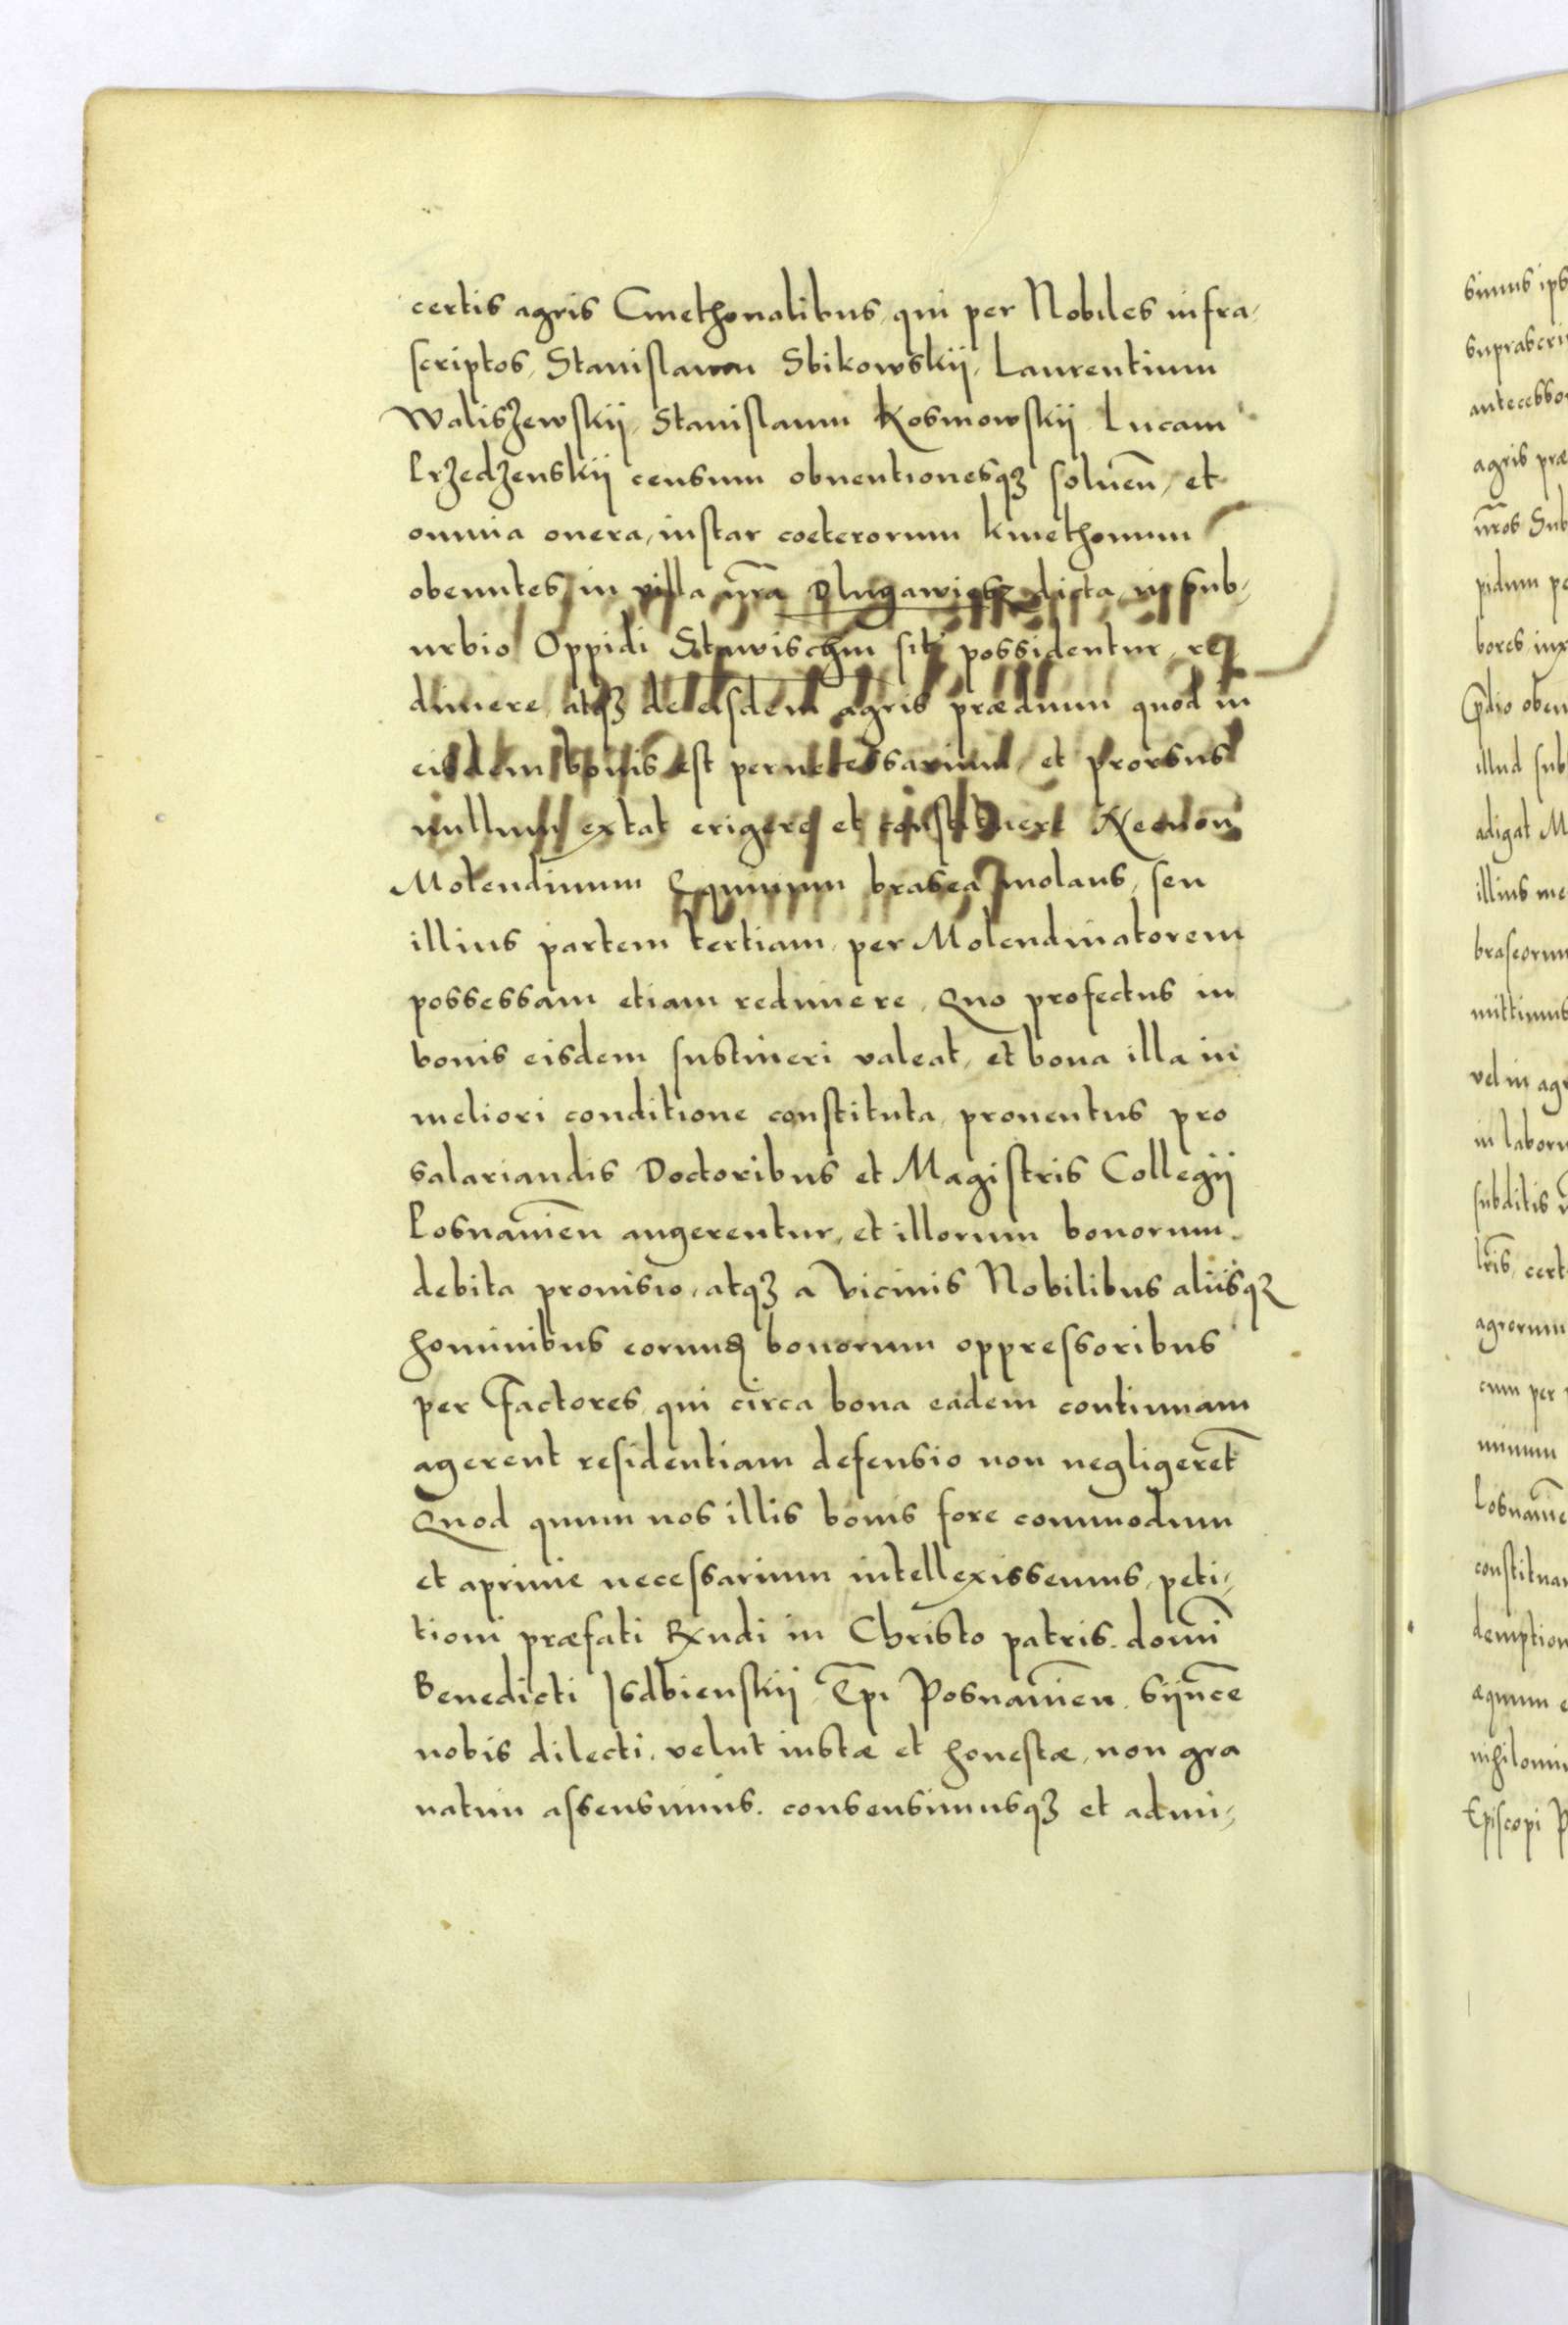 certis agris Cmethonalibus, qui per Nobiles infra,
scriptos, Stanislaum Sbikowskij, Laurentium
Waliszewskij, Stanislaum Kosmowskij Lucam
Przedzenskij censum obuentionesqꝫ soluen̄, et
omnia onera, instar coeterorum kmethonum
obeuntes, in villa nr̄a Dlugawiesz dicta, in sub,
urbio Oppidi Stawischin siti possidentur, re
dimere, atqꝫ de eisdem agris prædium quod in
eisdem bonis est pernecessarium, et prorsus
nullum extat erigere et constituere Necnon
Molendinum Equinum brasea molans, seu
illius partem tertiam, per Molendinatorem
possessam etiam redimere, Quo profectus in
bonis eisdem sustineri valeat, et bona illa in
meliori conditione constituta, prouentus pro
salariandis Doctoribus et Magistris Collegij
Posnanien̄ augerentur, et illorum bonorum
debita prouisio, atqꝫ a Vicinis Nobilibus alijsqꝫ
hominibus eorund̨ bonorum oppressoribus
per Factores, qui circa bona eadem continuam
agerent residentiam defensio non negligeret̄
Quod quum nos illis bonis fore commodum
et aprime necessarium intellexissemus, peti,
tioni præfati Rx̄ndi in Christo patris. domī
Benedicti Isdbienskij, Ep̄i Posnanien̄. sijnce
nobis dilecti, velut iustæ et honestæ, non gra
uatim assensimus. consensimusqꝫ et admi,
simus ips
suprascri
antecesso
agris præ
nr̄os Sub
pidum po
bores, iux
illud sub
adigat M
illius me
braseorum
mittimus
vel in agr
in labor
subditis
lr̄is, cert
agrorum
cum per
minum
Posnanie
constitua
demption
æquum e
nihilomi
Episcopi P